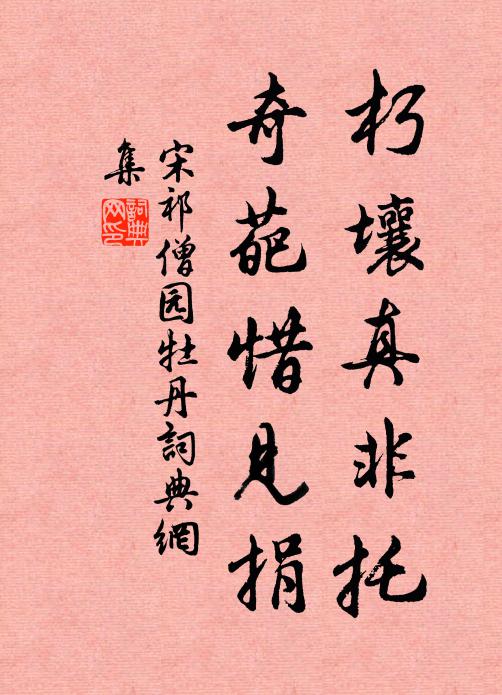 朽壤真非托
奇葩惜見捐
宋祁僧园牡丹詞典網
集
詞典網印